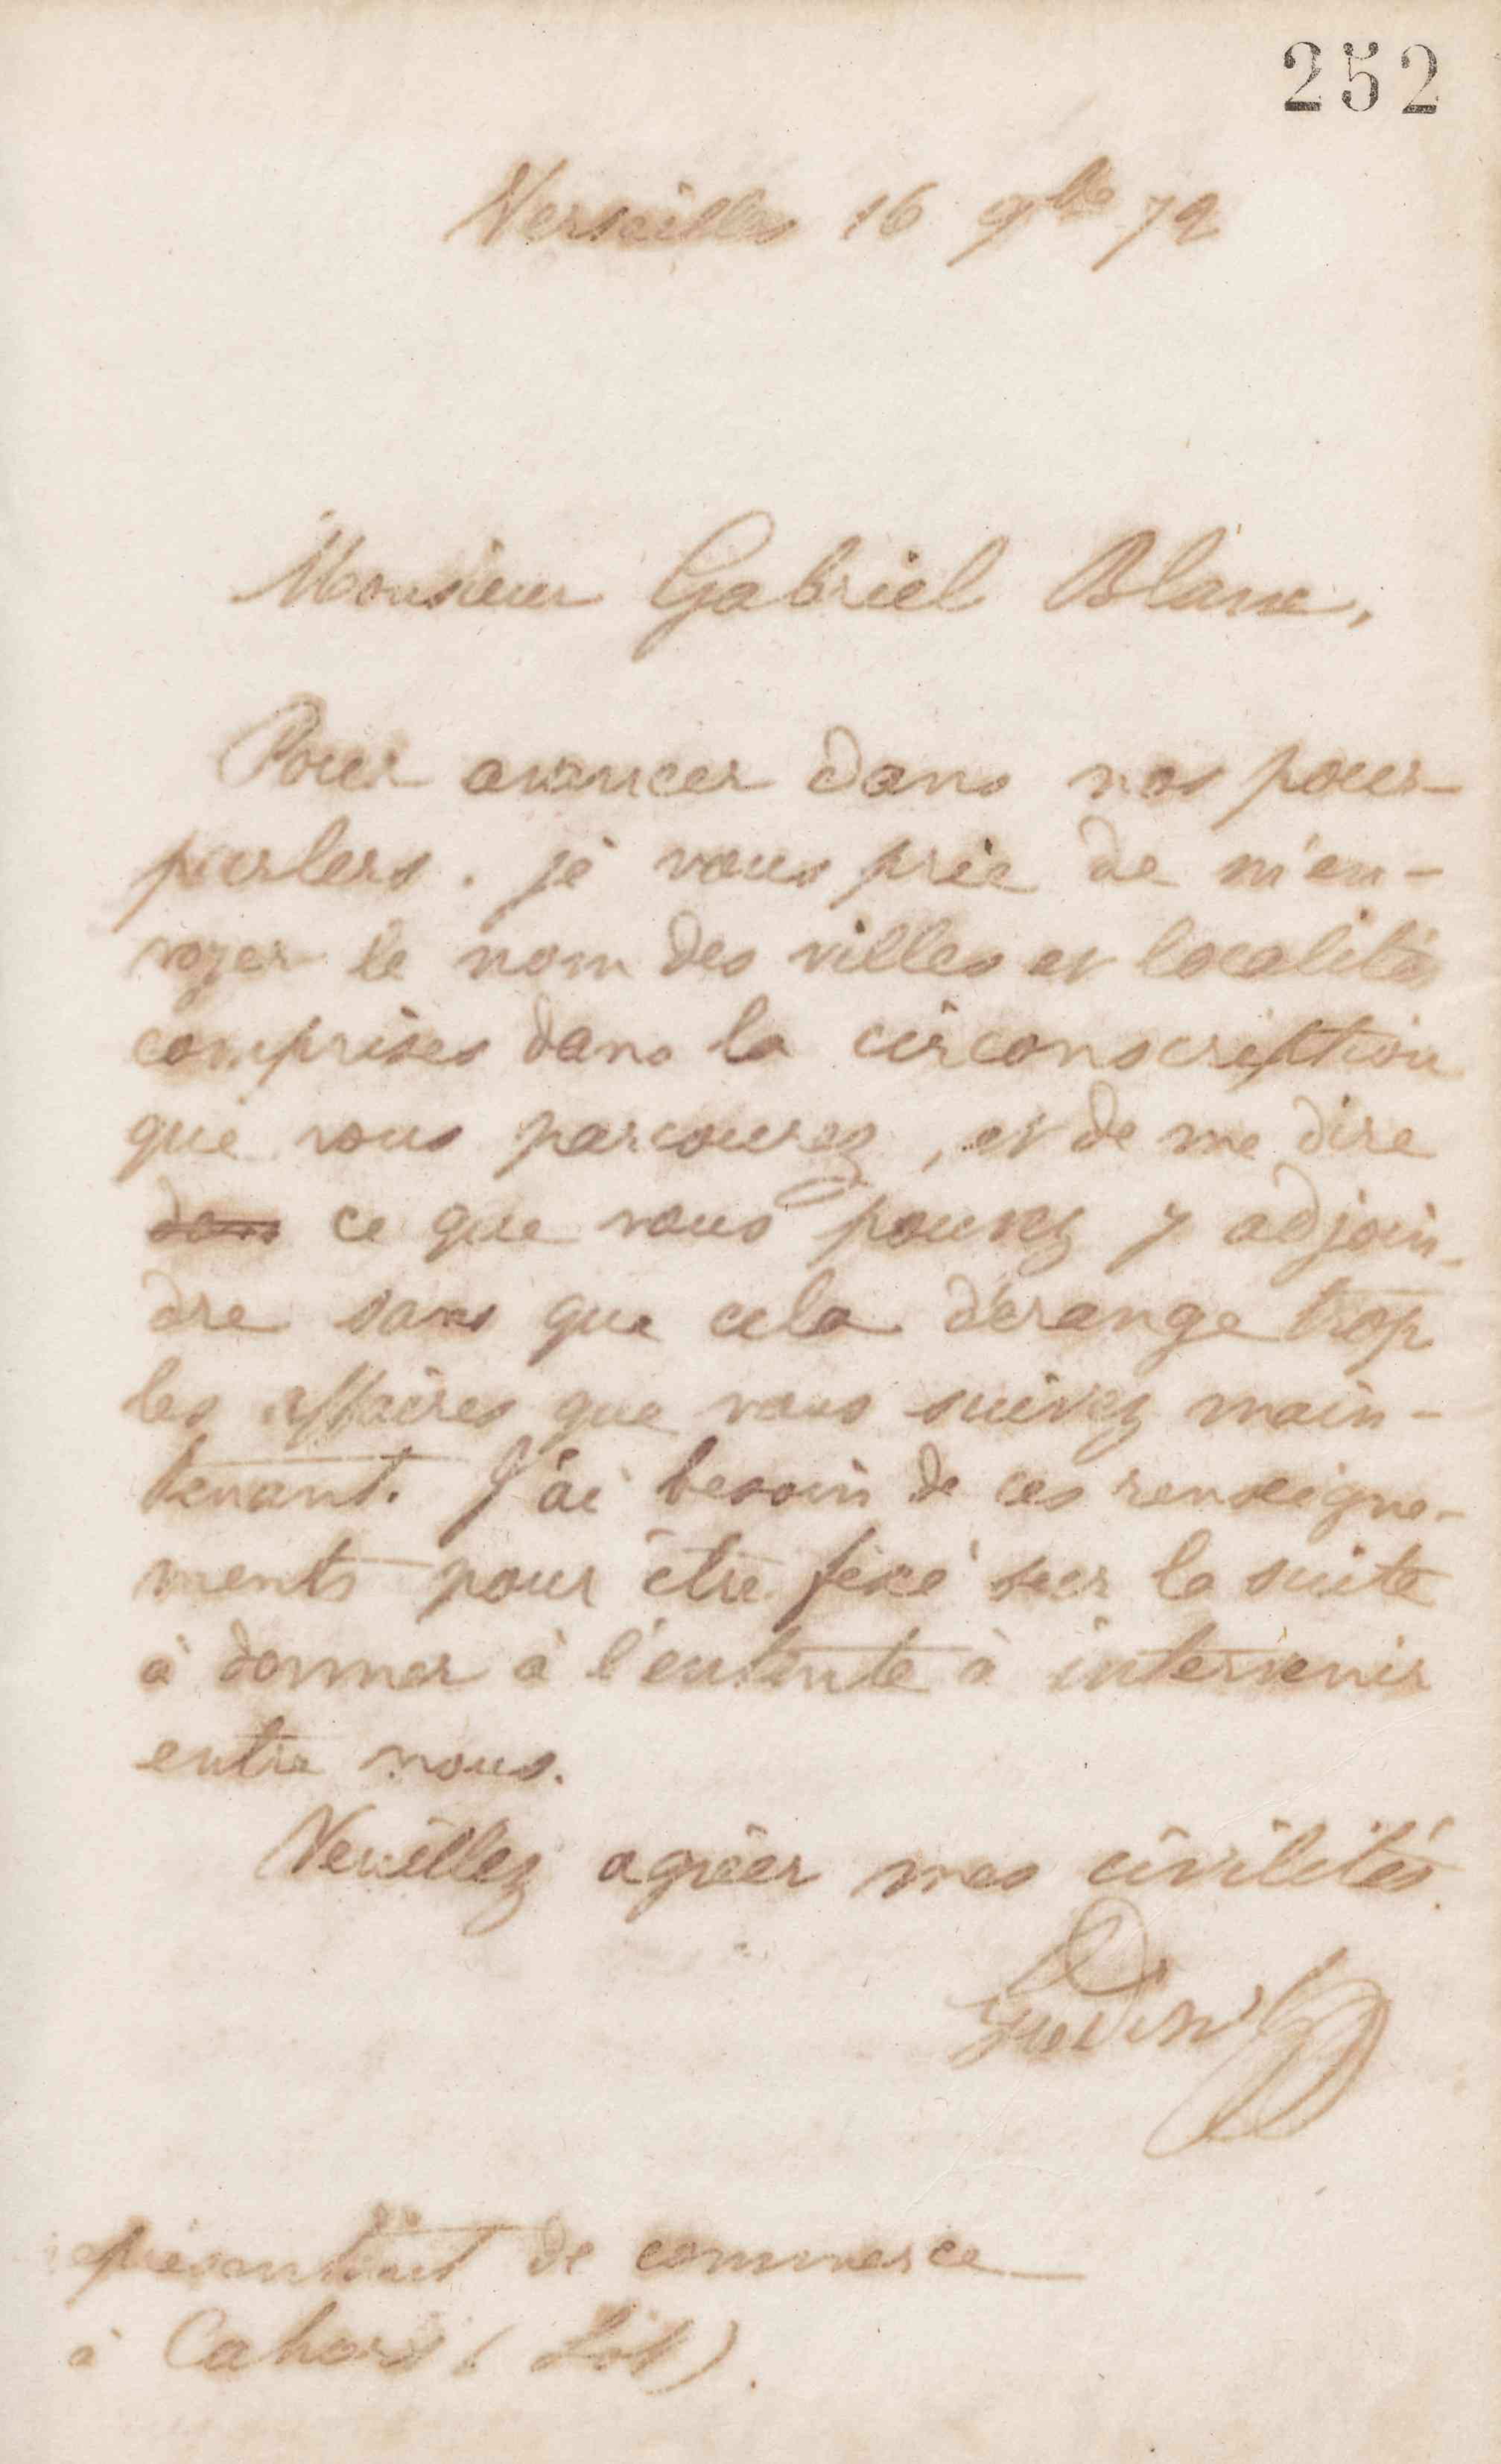 252
Versailles 16 9bre 72
Monsieur Gabriel Blanc,
Pour avancer dans nos pour-
parlers. je vous prie de m'en-
voyer le nom des villes et localités
comprises dans la circonscription
que vous parcourez, et de me dire
dans ce que vous pouvez y adjoin-
dre sans que cela dérange trop
les affaires que vous suivez main-
tenant. J'ai besoin de ces renseigne-
ments pour être fixé sur la suite
à donner à l'entente à intervenir
entre nous.
Veuillez agréer mes civilités.
Godin
représentant de commerce
à Cahors (Lot).